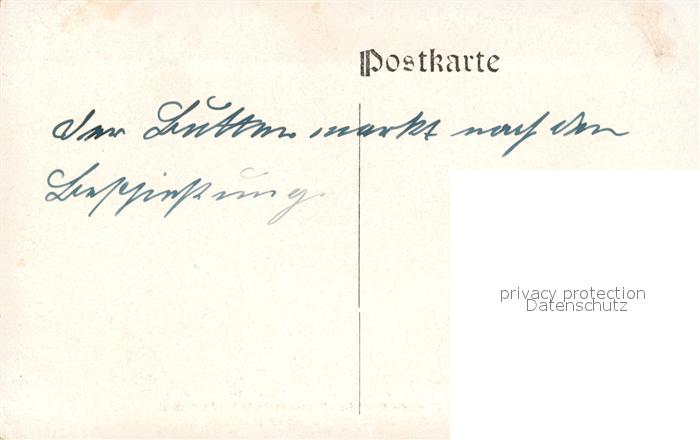 Postkarte
Der Buttermarkt nach den
Beschießung.
privacy protection
Datenschutz